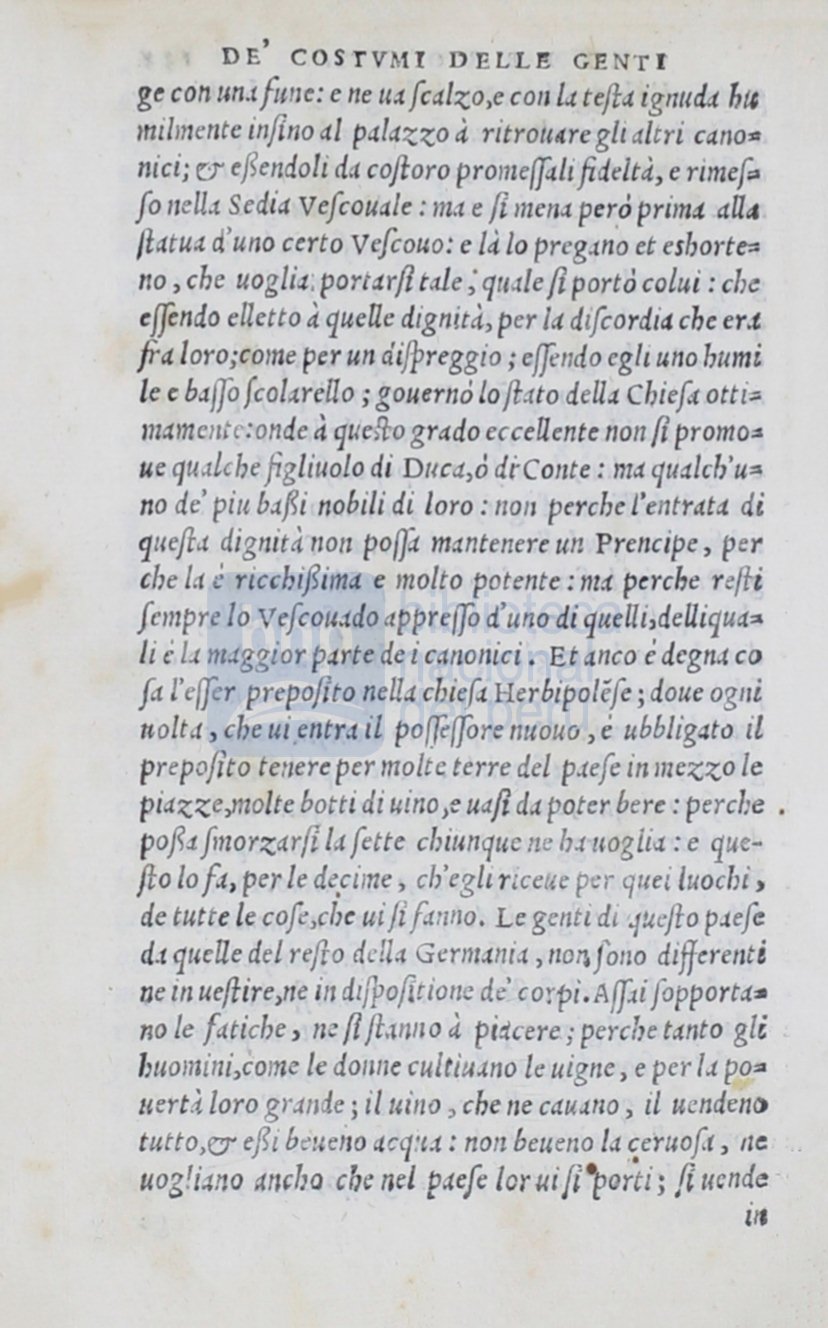 DE' COSTVMI DELLE GENTI
ge con una fune: e ne ua ſcalzo,e con la teſta ignuda hu
milmente inſino al palazzo à ritrouare gli altri cano=
nici; & eßendoli da coſtoro promeſſali fideltà, e rimeſ=
ſo nella Sedia Veſcouale : ma e ſi mena però prima alla
ſtatua d'uno certo Veſcouo: e là lo pregano et eshorte=
no , che uoglia portarſi tale , quale ſi portò colui : che
eſſendo elletto à quelle dignità, per la diſcordia che era
fra loro;come per un diſpreggio ; eſſendo egli uno humi
le e baſſo ſcolarello ; gouernò lo ſtato della Chieſa otti=
mamente:onde à queſto grado eccellente non ſi promo=
ue qualche figliuolo di Duca,ò di Conte : ma qualch'u=
no de' piu baßi nobili di loro : non perche l'entrata di
queſta dignità non poſſa mantenere un Prencipe, per
che la è ricchißima e molto potente : ma perche reſti
ſempre lo Veſcouado appreſſo d'uno di quelli,delliqua=
li è la maggior parte de i canonici . Et anco è degna co
ſa l'eſſer prepoſito nella chieſa Herbipolēſe ; doue ogni
uolta , che ui entra il poſſeſſore nuouo , è ubbligato il
prepoſito tenere per molte terre del paeſe in mezzo le
piazze,molte botti di uino,e uaſi da poter bere : perche
poßa ſmorzarſi la ſette chiunque ne ha uoglia : e que-
ſto lo fa, per le decime , ch'egli riceue per quei luochi ,
de tutte le coſe,che ui ſi fanno. Le genti di queſto paeſe
da quelle del reſto della Germania , non ſono differenti
ne in ueſtire,ne in diſpoſitione de' corpi. Aſſai ſopporta=
no le fatiche , ne ſi ſtanno à piacere ; perche tanto gli
huomini,come le donne cultiuano le uigne , e per la po=
uertà loro grande ; il uino , che ne cauano , il uendeno
tutto,& eßi beueno acqua : non beueno la ceruoſa , ne
uogliano ancho che nel paeſe lor ui ſi porti ; ſi uende
in
biblioteca
nacional
del perú